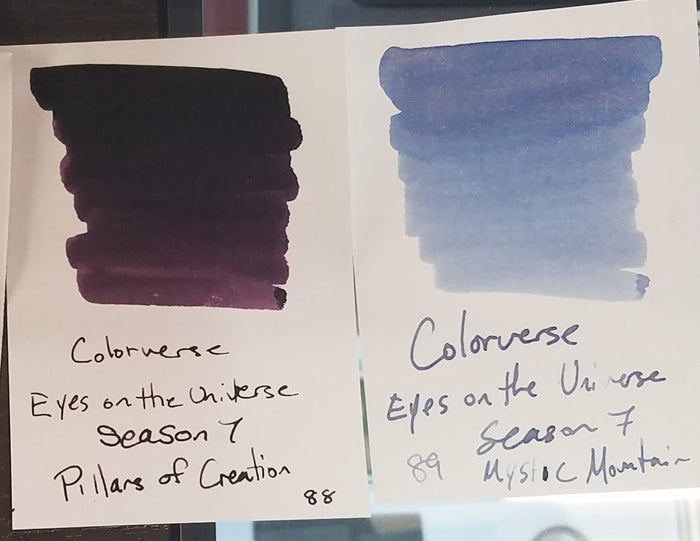 Colorverse
Eyes on the Universe
Season 7
Pillars of Creation
88
Colorverse
Eyes on the Universe
Season 7
89 Mystic Mountain